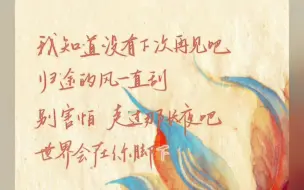 我知道没有下次再见吧
归途的风一直刮
别害怕 走过那长夜吧
世界会在你脚下